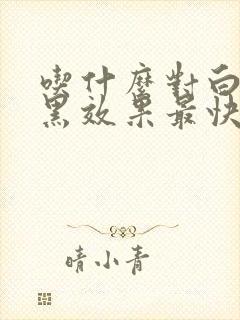 喫什麼對白
黑效果最快
晴小青